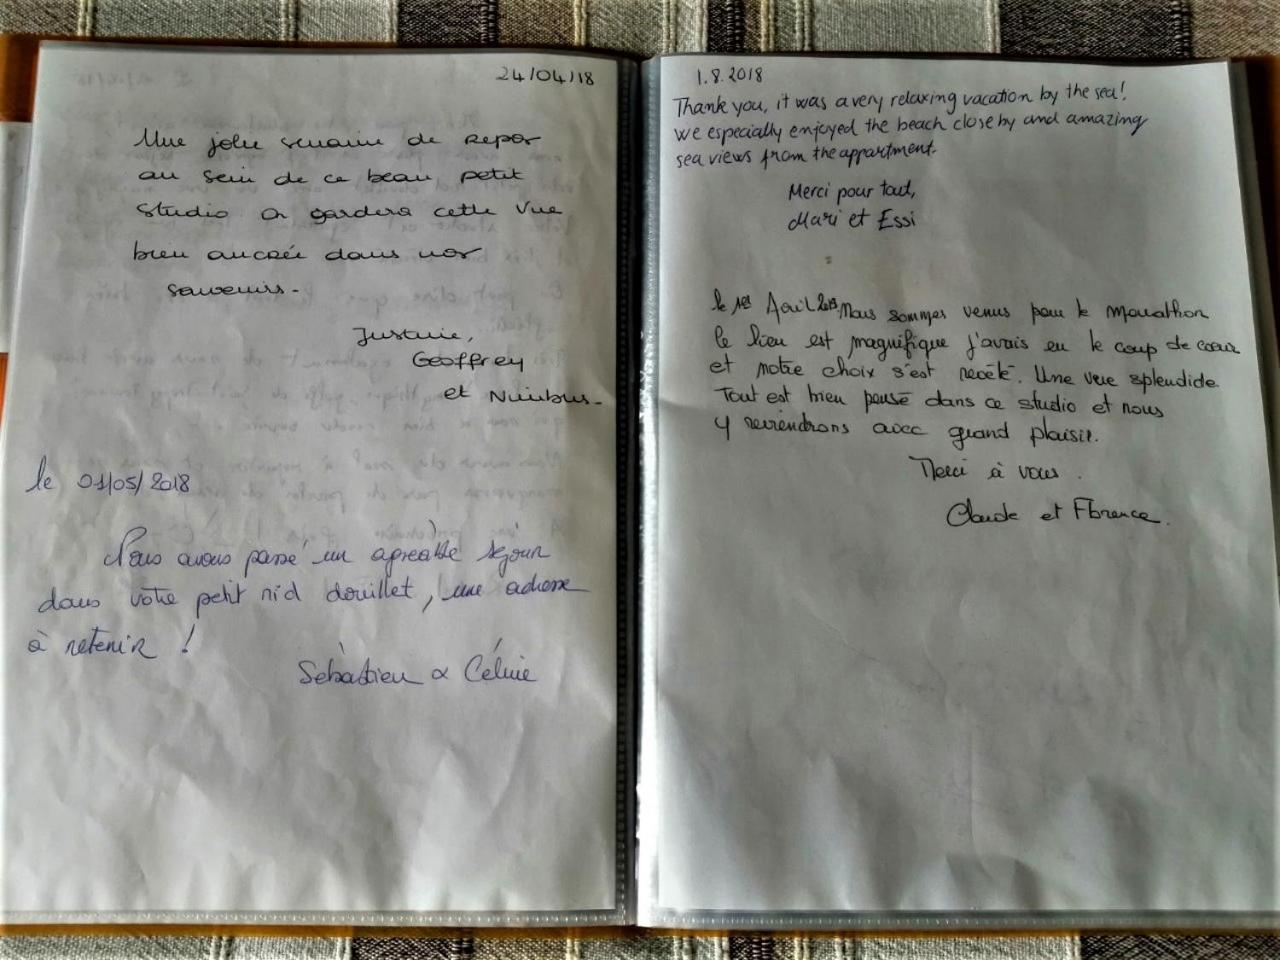 24/04/18
Une jolie semaine de repos
au sein de ce beau petit
studio on gardera cette vue
bien ancrée dans nos
souvenirs-
Justine,
Geoffrey
et Nimbus-
le 01/05/2018
Nous avons passé un agréable séjour
dans votre petit nid douillet, une adresse
à retenir !
Sébastien & Céline
1.8.2018
Thank you, it was a very relaxing vacation by the sea!
We especially enjoyed the beach close by and amazing
sea views from the appartment.
Merci pour tout,
Mari et Essi
le 1er Avril Nous sommes venus pour le Marathon
le lieu est magnifique j'avais eu le coup de cœur
et notre choix s'est Une vue splendide
Tout est bien pensé dans ce studio et nous
y reviendrons avec grand plaisir.
Merci à vous.
Claude et Florence.